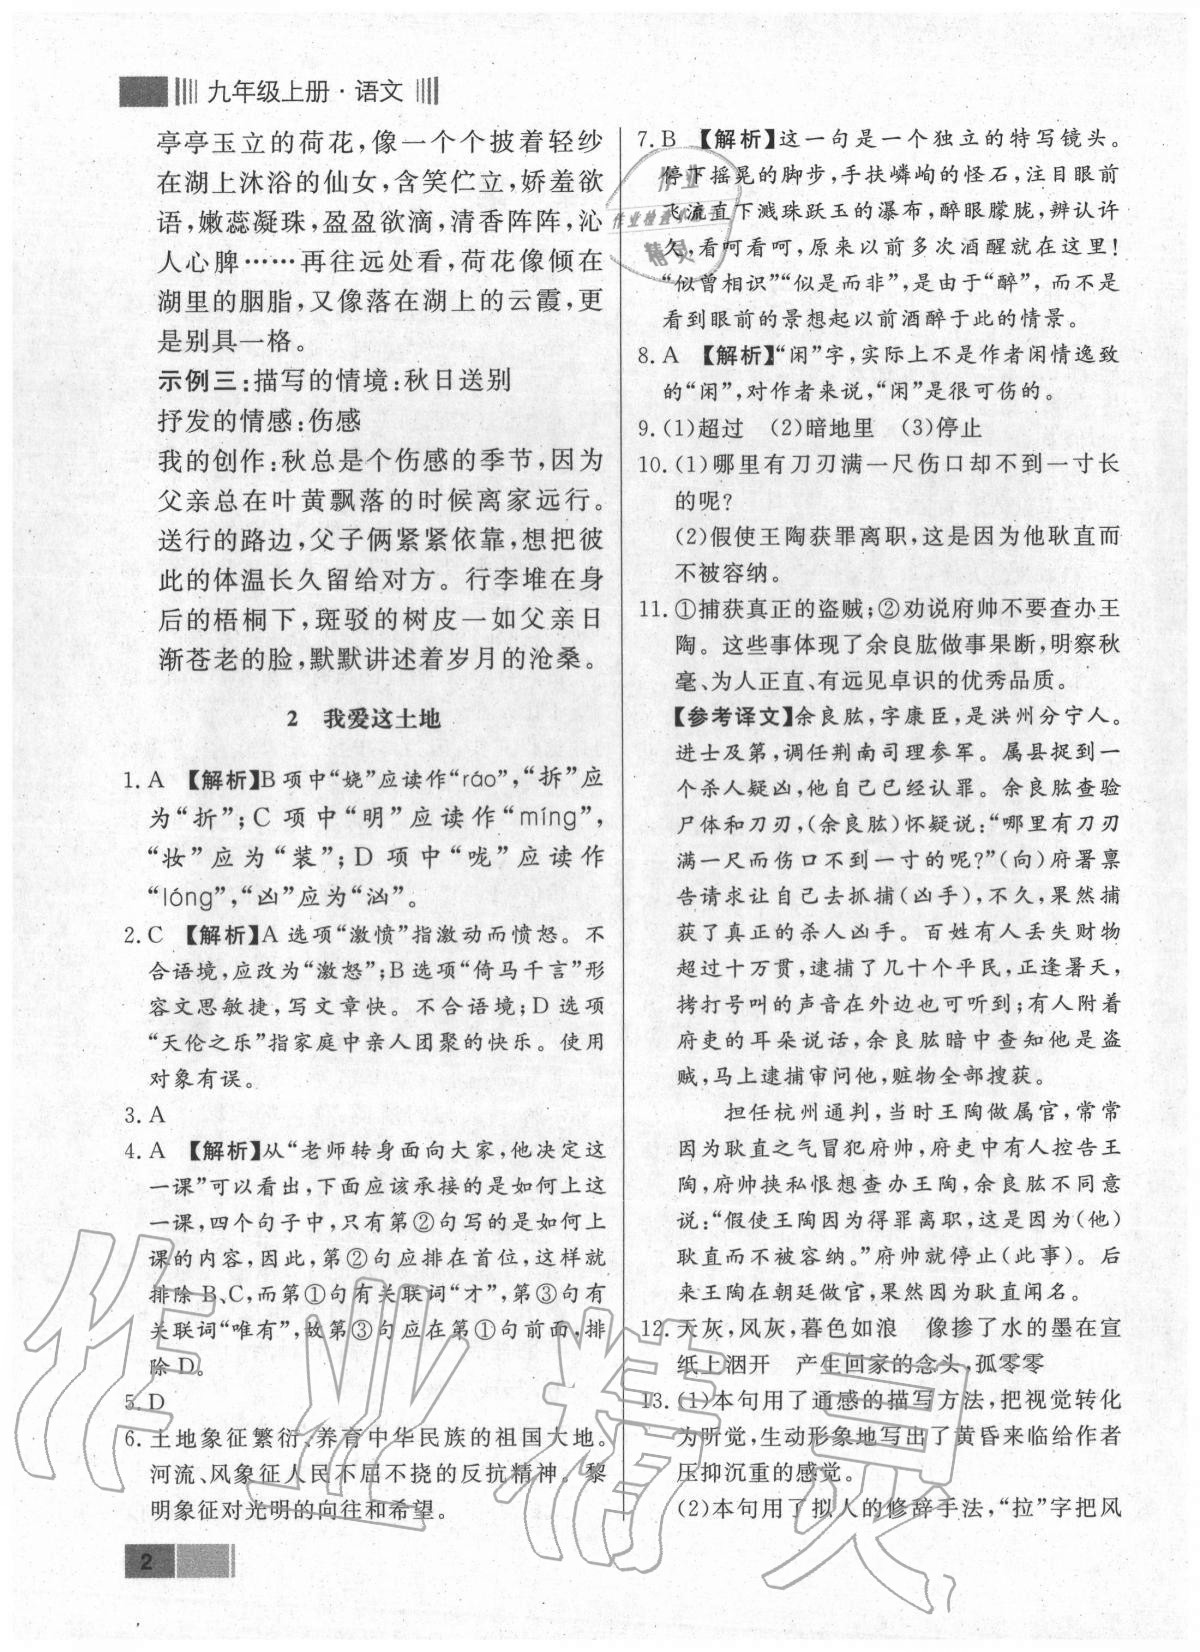 九年级上册·语文
亭亭玉立的荷花,像一个个披着轻纱
在湖上沐浴的仙女,含笑伫立,娇羞欲
语,嫩蕊凝珠,盈盈欲滴,清香阵阵,沁
人心脾……再往远处看,荷花像倾在
湖里的胭脂,又像落在湖上的云霞,更
是别具一格。
示例三:描写的情境:秋日送别
抒发的情感:伤感
我的创作:秋总是个伤感的季节,因为
父亲总在叶黄飘落的时候离家远行。
送行的路边,父子俩紧紧依靠,想把彼
此的体温长久留给对方。行李堆在身
后的梧桐下,斑驳的树皮一如父亲日
渐苍老的脸,默默讲述着岁月的沧桑。
2 我爱这土地
1. A 【解析】B项中“娆”应读作“ráo”,“拆”应
为“折”;C项中“明”应读作“míng”,
“妆”应为“装”;D项中“咙”应读作
“lóng”,“凶”应为“汹”。
2. C 【解析】A选项“激愤”指激动而愤怒。不
合语境,应改为“激怒”;B选项“倚马千言”形
容文思敏捷,写文章快。不合语境;D选项
“天伦之乐”指家庭中亲人团聚的快乐。使用
对象有误。
3. A
4. A 【解析】从“老师转身面向大家,怎么上这
一课”可以看出,下面应该承接的是如何上这
一课,四个句子中,只有第②句写的是如何上
课的内容,因此,第②句应排在首位,这样就
排除B、C,而第①句有关联词“才”,第③句有
关联词“唯有”,故第③句应在第①句前面,排
除D。
5. D
6. 土地象征繁衍、养育中华民族的祖国大地。
河流、风象征人民不屈不挠的反抗精神。黎
明象征对光明的向往和希望。
2
7. B 【解析】这一句是一个独立的特写镜头。
停下摇晃的脚步,手扶嶙峋的怪石,注目眼前
飞流直下溅珠跃玉的瀑布,醉眼朦胧,辨认许
久,看呵看呵,原来以前多次酒醒在这里!
“似曾相识”“似是而非”,是由于“醉”,而不是
看到眼前的景想起以前酒醉于此的情景。
8. A 【解析】“闲”字,实际上不是作者闲情逸致
的“闲”,对作者来说,“闲”是很可伤的。
9. (1)超过 (2)暗地里 (3)停止
10. (1)哪里有刀刃满一尺伤口却不到一寸长
的呢?
(2)假使王陶获罪离职,这是因为他耿直而
不被容纳。
11. ①捕获真正的盗贼;②劝说府帅不要查办王
陶。这些事体现了余良肱做事果断,明察秋
毫、为人正直、有远见卓识的优秀品质。
【参考译文】余良肱,字康臣,是洪州分宁人。
进士及第,调任荆南司理参军。属县捉到一
个杀人疑凶,他自己已经认罪。余良肱查验
尸体和刀刃,(余良肱)怀疑说:“哪里有刀刃
满一尺而伤口不到一寸的呢?”(向)府署禀
告请求让自己去抓捕(凶手),不久,果然捕
获了真正的杀人凶手。百姓有人丢失财物
超过十万贯,逮捕了几十个平民,正逢暑天,
拷打号叫的声音在外边也可听到;有人附着
府吏的耳朵说话,余良肱暗中查知他是盗
贼,马上逮捕审问他,赃物全部搜获。
担任杭州通判,当时王陶做属官,常常
因为耿直之气冒犯府帅,府吏中有人控告王
陶,府帅挟私恨想查办王陶,余良肱不同意
说:“假使王陶因为得罪离职,这是因为(他)
耿直而不被容纳。”府帅就停止(此事)。后
来王陶在朝廷做官,果然因为耿直闻名。
12. 天灰,风灰,暮色如浪 像掺了水的墨在宣
纸上洇开 产生回家的念头,孤零零
13. (1)本句用了通感的描写方法,把视觉转化
为听觉,生动形象地写出了黄昏来临给作者
压抑沉重的感觉。
(2)本句用了拟人的修辞手法,“拉”字把风
作业
精灵
作业精灵